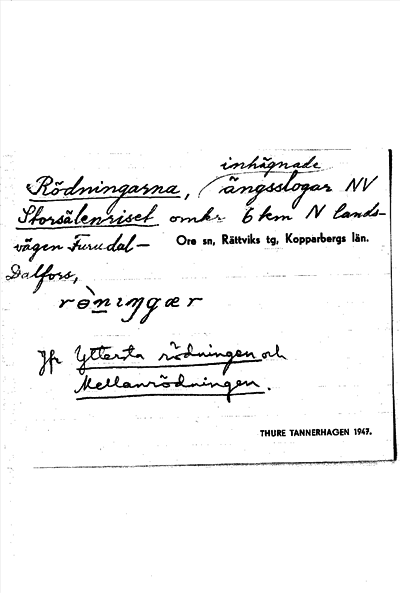 inhägnade
Rödningarna, ängsslogar NV
Storsälenriset omkr 6 km N lands-
vägen Furudal–
Ore sn, Rättviks tg, Kopparbergs län.
Dalfors,
Jfr Yttersta rödningen och
Mellanrödningen.
THURE TANNERHAGEN 1947.